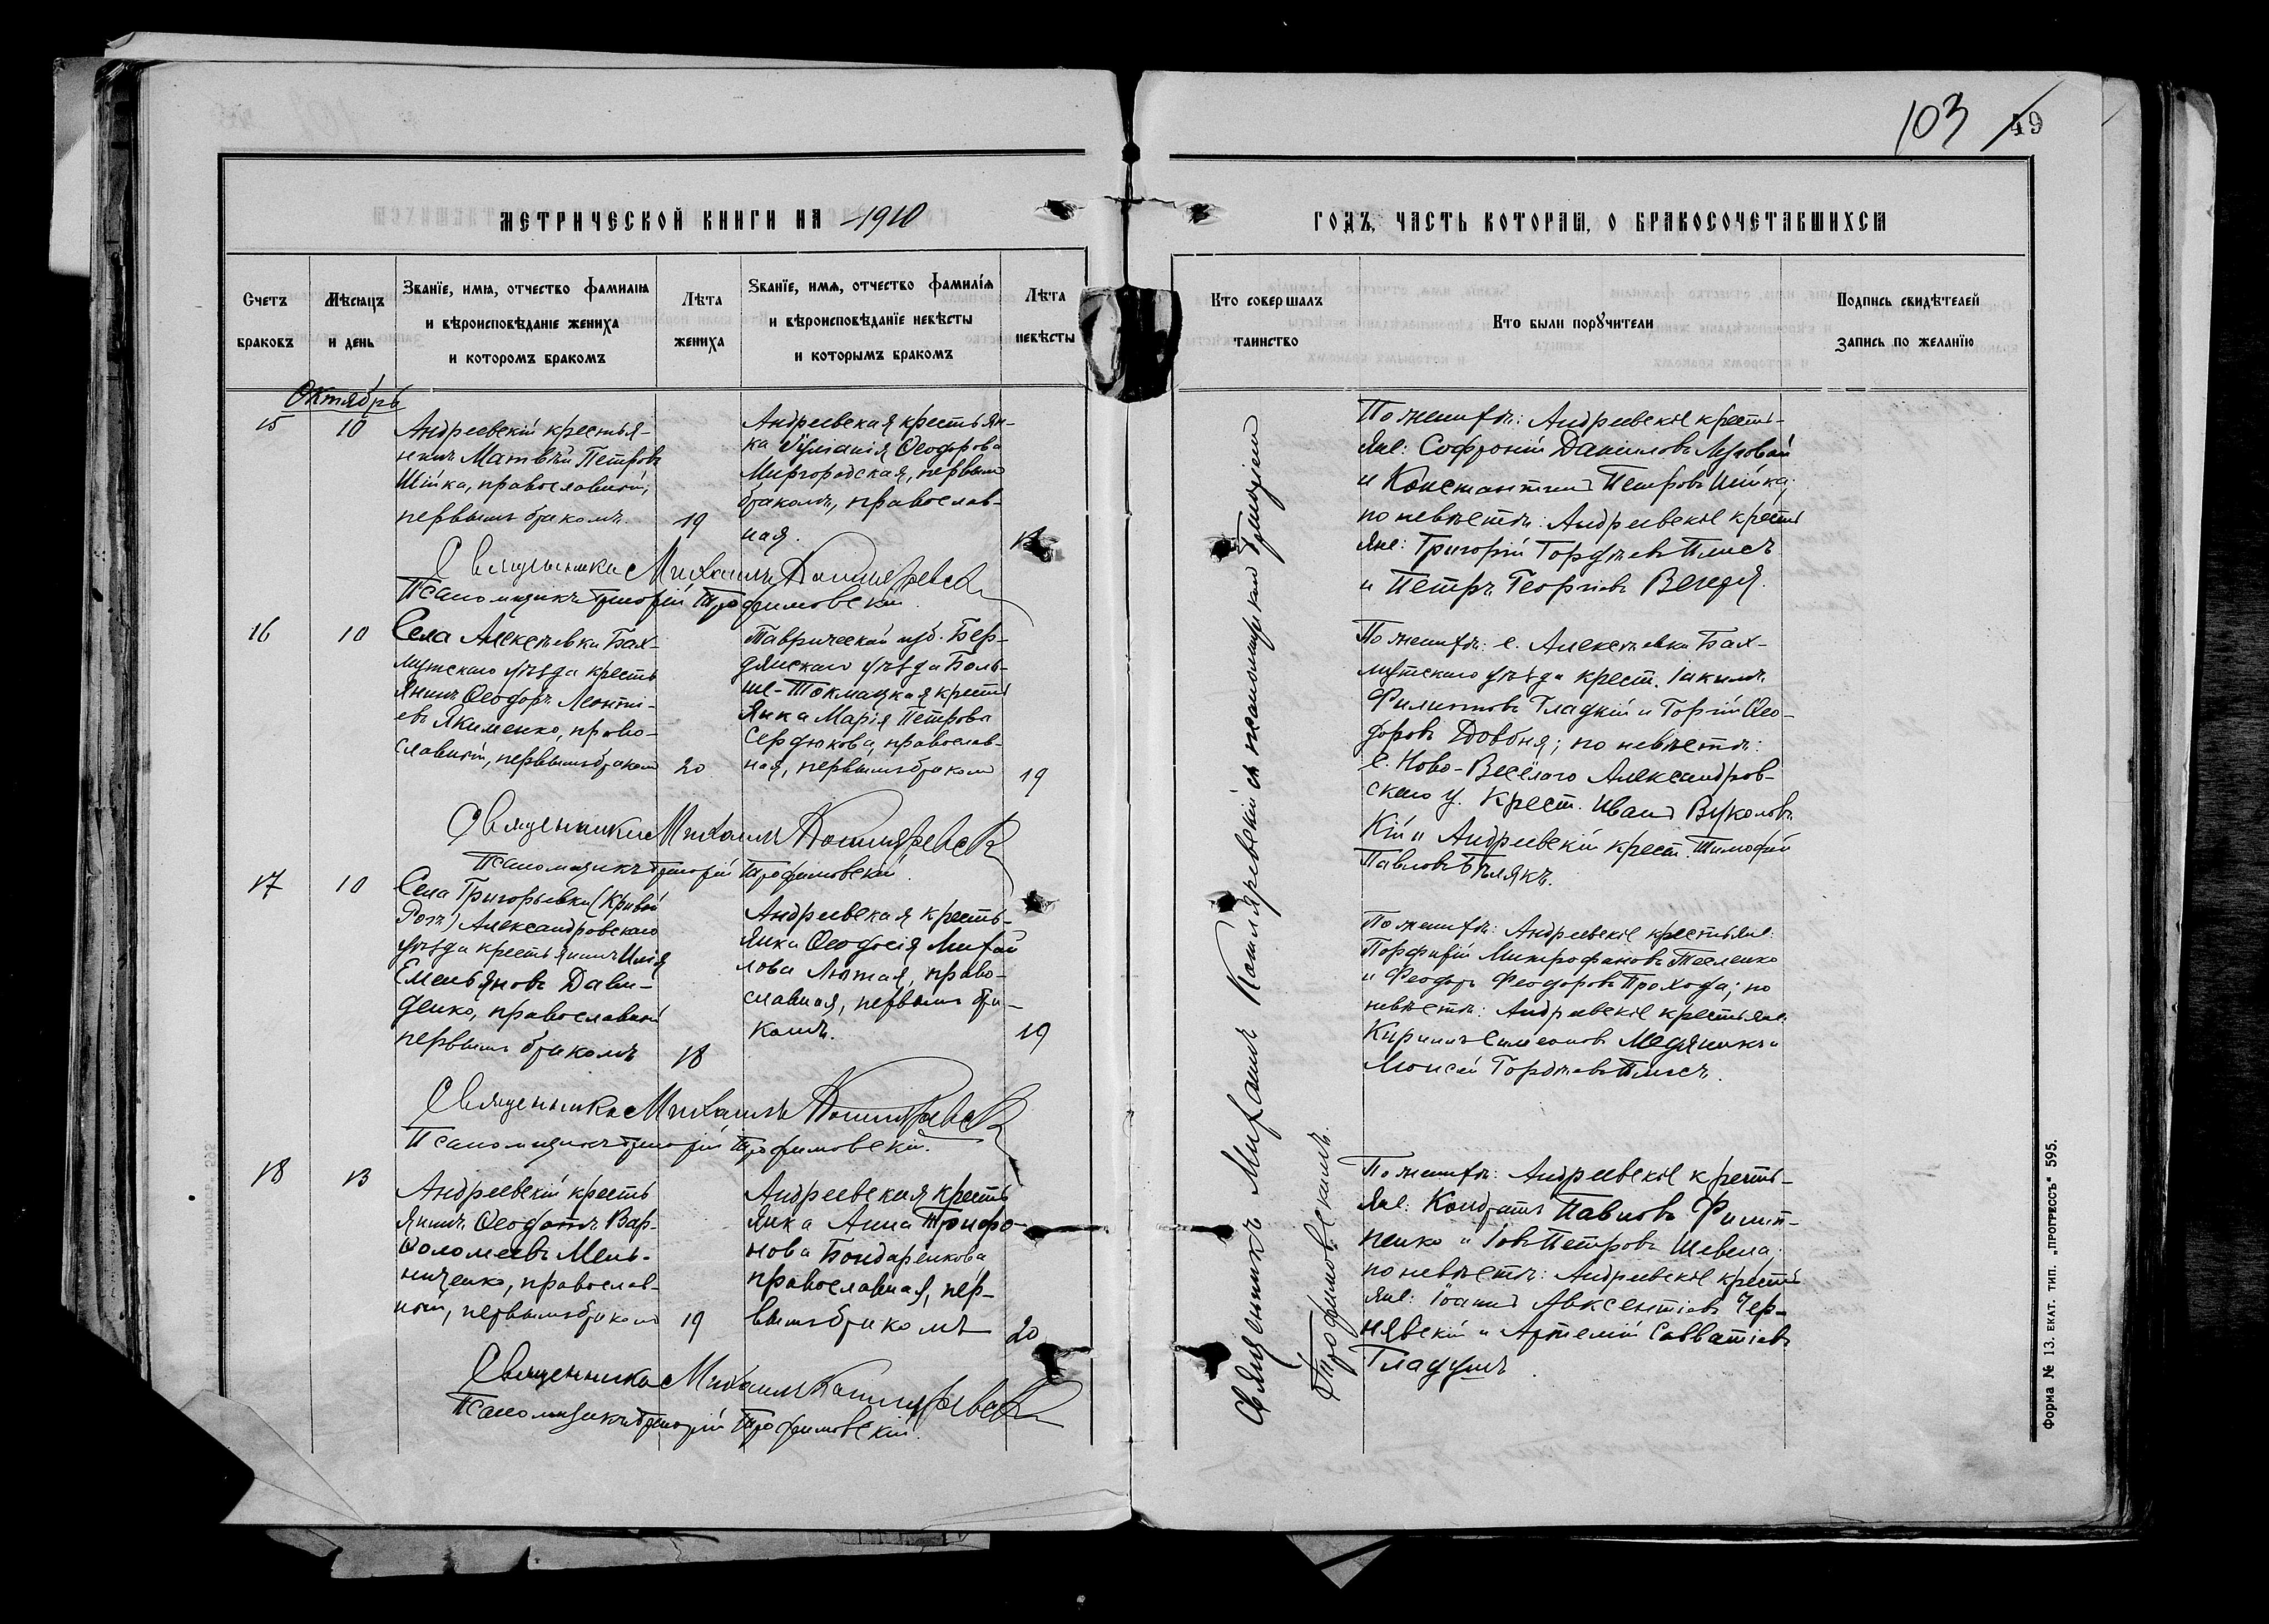 103 49
МЕТРИЧЕСКОЙ КНИГИ НА 1910
ГОДЪ, ЧАСТЬ ВТОРАЯ, О БРАКОСОЧЕТАВШИХСЯ
Счетъ
браковъ
Мѣсяцъ
и день
Званіе, имя, отчество фамилія
и вѣроисповѣданіе жениха
и которомъ бракомъ
Лѣта
жениха
Званїе, имя, отчество фамилїя
и вѣроисповѣданїе невѣсты
и которымъ бракомъ
Лѣта
невѣсты
Кто совершалъ
таинство
Кто были поручители
Подпись свидѣтелей
запись по желанїю
Октябрь
15
10
Андреевскій крестья-
нинъ Матвѣй Петровъ
Шійка, православный,
первымъ бракомъ
19
Андреевская крестьян-
ка Іуліанія Ѳеодорова
Миргородская, первымъ
бракомъ, православ-
ная.
Священникъ Михаилъ Котляревскій
Псаломщикъ Григорій Трофимовскій.
По женихѣ: Андреевскіе кресть-
яне: Софроній Даниловъ
и Константинъ Петровъ Шійка;
по невѣстѣ: Андреевскіе кресть
яне: Григорій Гордѣевъ Плисъ
и Петръ Георгіевъ Венда.
16
10
Села Алексѣевки Бах-
мутскаго уѣзда кресть
янинъ Ѳеодоръ Леонті-
евъ Якименко, право-
славный, первымъ бракомъ
20
Таврической губ. Бер-
дянскаго уѣзда Боль-
ше-Токмацкая кресть
янка Марія Петрова
Сердюкова, православ-
ная, первымъ бракомъ
19
Священникъ Михаилъ Котляревскій
Псаломщикъ Григорій Трофимовскій.
По женихѣ: с. Алексѣевки Бах-
мутскаго уѣзда крест. Іакимъ
Филиповъ Гладкій и Гордій Ѳео-
доровъ Довбня; по невѣстѣ:
с. Ново-Весёлаго Александров-
скаго у. крест. Иванъ Вуколовъ
Кій и Андреевскій крест. Тимофей
Павловъ Бѣлякъ.
17
10
Села Григорьевки (Кривой
Рогъ) Александровскаго
уѣзда крестьянинъ Илія
Емельяновъ Дави-
денко, православный
первымъ бракомъ
18
Андреевская кресть-
янка Ѳеодосія Михай
лова Лютая, право-
славная, первымъ бра-
комъ.
19
Священникъ Михаилъ Котляревскій
Псаломщикъ Григорій Трофимовскій.
По женихѣ: Андреевскіе крестьяне:
Порфирій Митрофановъ Тесленко
и Феодоръ Феодоровъ Прохода; по
невѣстѣ: Андреевскіе крестьяне:
Кириллъ Симеоновъ Медяникъ и
Моисей Гордѣевъ Плисъ.
18
13
Андреевскій кресть
янинъ Ѳеодотъ Вар-
ѳоломеевъ Мель-
ниченко, православ-
ный, первымъ бракомъ
19
Андреевская кресть
янка Анна Трифо-
нова Бондаренкова,
православная, пер-
вымъ бракомъ
20
Священникъ Михаилъ Котляревскій
Псаломщикъ Григорій Трофимовскій.
По женихѣ: Андреевскіе кресть-
яне: Кондратъ Павловъ Филип-
пенко и Іовъ Петровъ Шевела;
по невѣстѣ: Андреевскіе кресть
яне: Іоаннъ Авксентіевъ Чер-
нявскій и Артемій Савватіевъ
Гладушъ.
Священникъ Михаилъ Котляревскій съ псаломщикомъ Григоріемъ
Трофимовскимъ.
Форма № 13. ЕКАТ. ТИП. „ПРОГРЕССЪ“ 595.